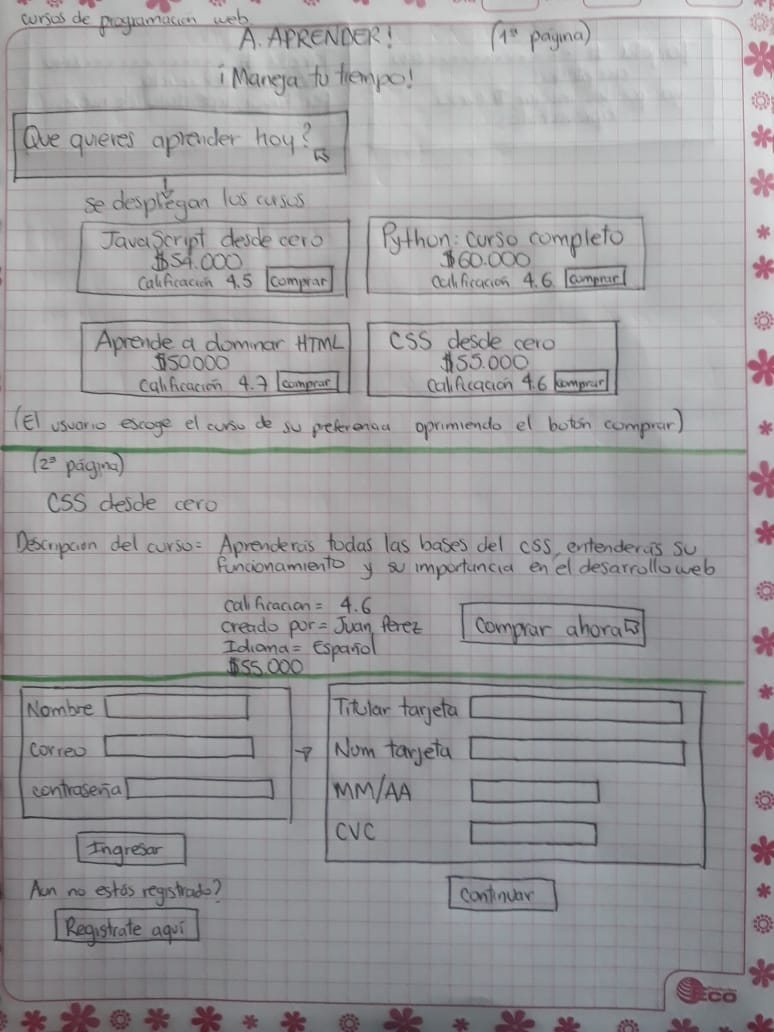 cursos de programación web
A. APRENDER! (1ª página)
¡Maneja tu tiempo!
Que quieres aprender hoy?
se desplegan los cursos
JavaScript desde cero
$54.000
Calificación 4.5 comprar
Python: curso completo
$60.000
Calificación 4.6 comprar
Aprende a dominar HTML
$50000
Calificación 4.7 comprar
CSS desde cero
$55.000
Calificación 4.6 comprar
(El usuario escoge el curso de su preferencia oprimiendo el botón comprar)
(2ª página)
CSS desde cero
Descripcion del curso= Aprenderás todas las bases del CSS, entenderás su
funcionamiento y su importancia en el desarrollo web
calificacion= 4.6
creado por= Juan Perez
Idioma= Español
$55.000
Comprar ahora
Nombre
correo
contraseña
Ingresar
Aun no estás registrado?
Registrate aquí
Titular tarjeta
Num tarjeta
MM/AA
CVC
Continuar
ECO